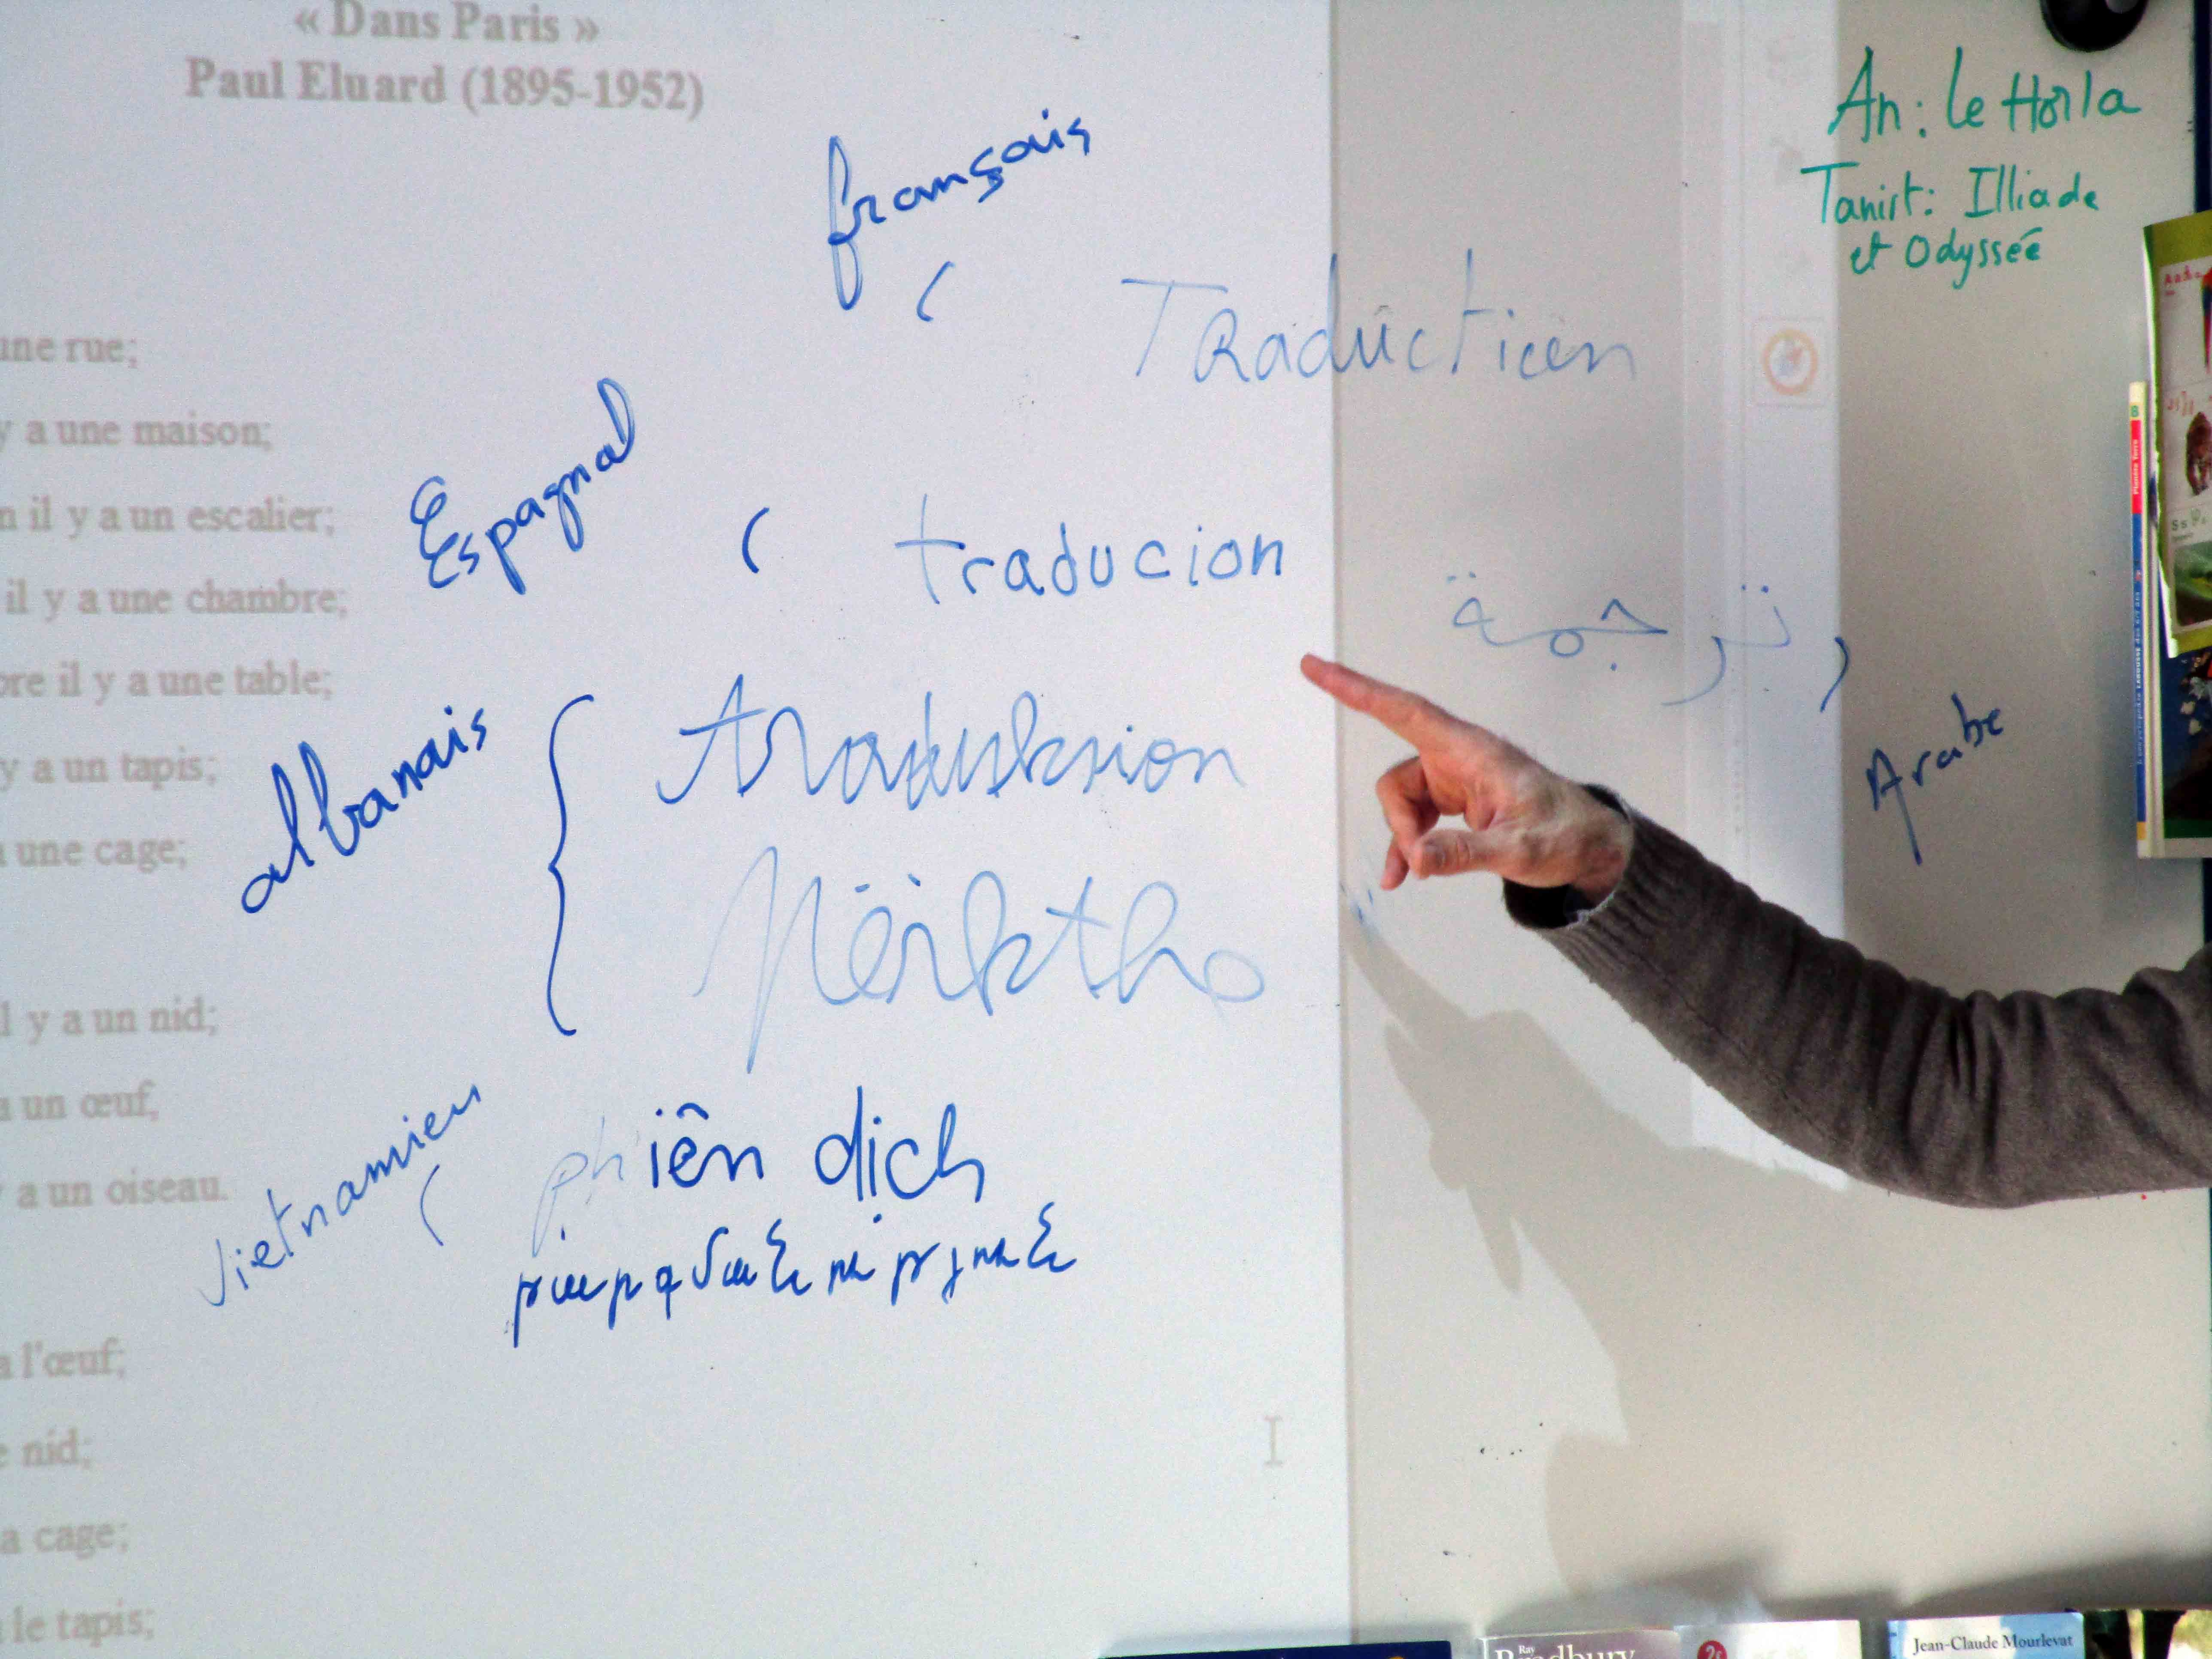 « Dans Paris »
Paul Eluard (1895-1952)
An: le Horla
Tanirt: Illiade
et Odyssée
français
Traduction
une rue;
y a une maison;
il y a un escalier;
Espagnol
traducion
il y a une chambre;
ترجمة
Arabe
il y a une table;
albanais
traduksion
y a un tapis;
une cage;
y a un nid;
un œuf,
Vietnamien
phiên dich
a un oiseau.
l'œuf;
nid;
cage;
le tapis;
Ray
Bradbury
Jean-Claude Mourlevat